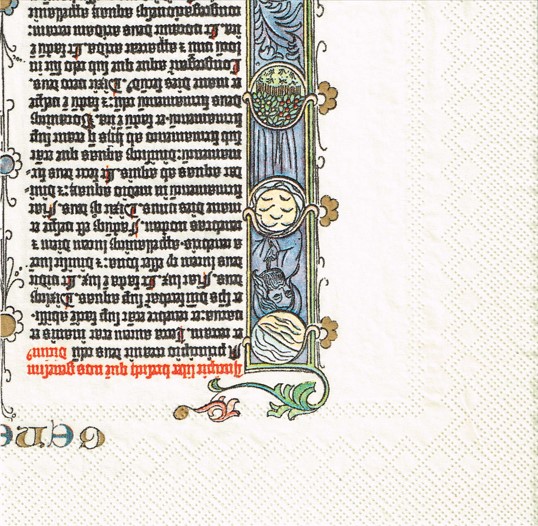 Gene
Incipit liber bresith quē nos genesim
A principio creauit deus celū dicimꝰ
et terram. Terra autem erat inanis et
vacua: et tenebre erāt suꝑ faciē abissi:
et sp̄s dn̄i ferebatur suꝑ aquas. Dixitqꝫ
deus. Fiat lux. Et facta ē lux. Et vidit
deus lucem ꝙ esset bona: et diuisit lucē
a tenebris· appellauitqꝫ lucem diem et
tenebras noctem. Factūqꝫ est vespe et
mane dies unus. Dixit qꝫ deus. Fiat
firmamentū in medio aquaꝝ: et diui-
dat aquas ab aquis. Et fecit deus fir-
mamentū: diuisitqꝫ aquas que erāt
sub firmamento ab hijs q̄ erant suꝑ
firmamentum: et factū ē ita. Vocauitqꝫ
deus firmamentū celū: et factū ē vespe
et mane dies secūdꝰ. Dixit vero deus.
Congregent̄ aque que sub celo sūt in
locū unū et appareat arida. Et factū ē
ita. Et vocauit deus aridam terram:
congregacionesqꝫ aquaꝝ appellauit